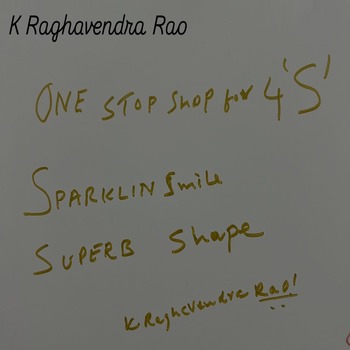 K Raghavendra Rao
ONE STOP SHOP for 4'S'
SPARKLIN Smile
SUPERB Shape
K Raghavendra Rao!